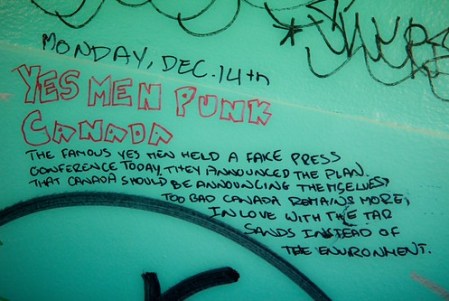 MONDAY, DEC. 14th
YES MEN PUNK
CANADA
THE FAMOUS YES MEN HELD A FAKE PRESS
CONFERENCE TODAY. THEY ANNOUNCED THE PLAN.
THAT CANADA SHOULD BE ANNOUNCING THEMSELVES,
TOO BAD CANADA REMAINS MORE,
IN LOVE WITH THE TAR
SANDS INSTEAD OF
THE ENVIRONMENT.